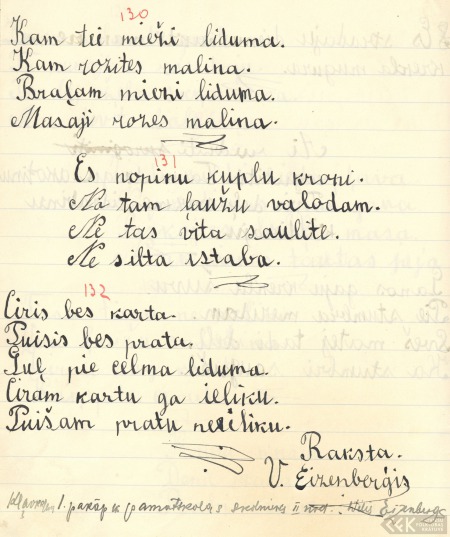 130
Kam tie mieži liduma.
Kam rozites malina.
Braļam miezi liduma.
Masaji rozes malina.
131
Es nopinu kuplu kroni.
No tam ļaužu valodam.
Ne tas vita saulite.
Ne silta istaba.
132
Ciris bes karta.
Puisis bes prata.
Guļ pie celma liduma
Ciram kartu ga ieliku.
Puišam pratu neieliku.
Raksta.
V. Eizenberģis
1. pakāp
pamatskolas
II
Eizenbergs